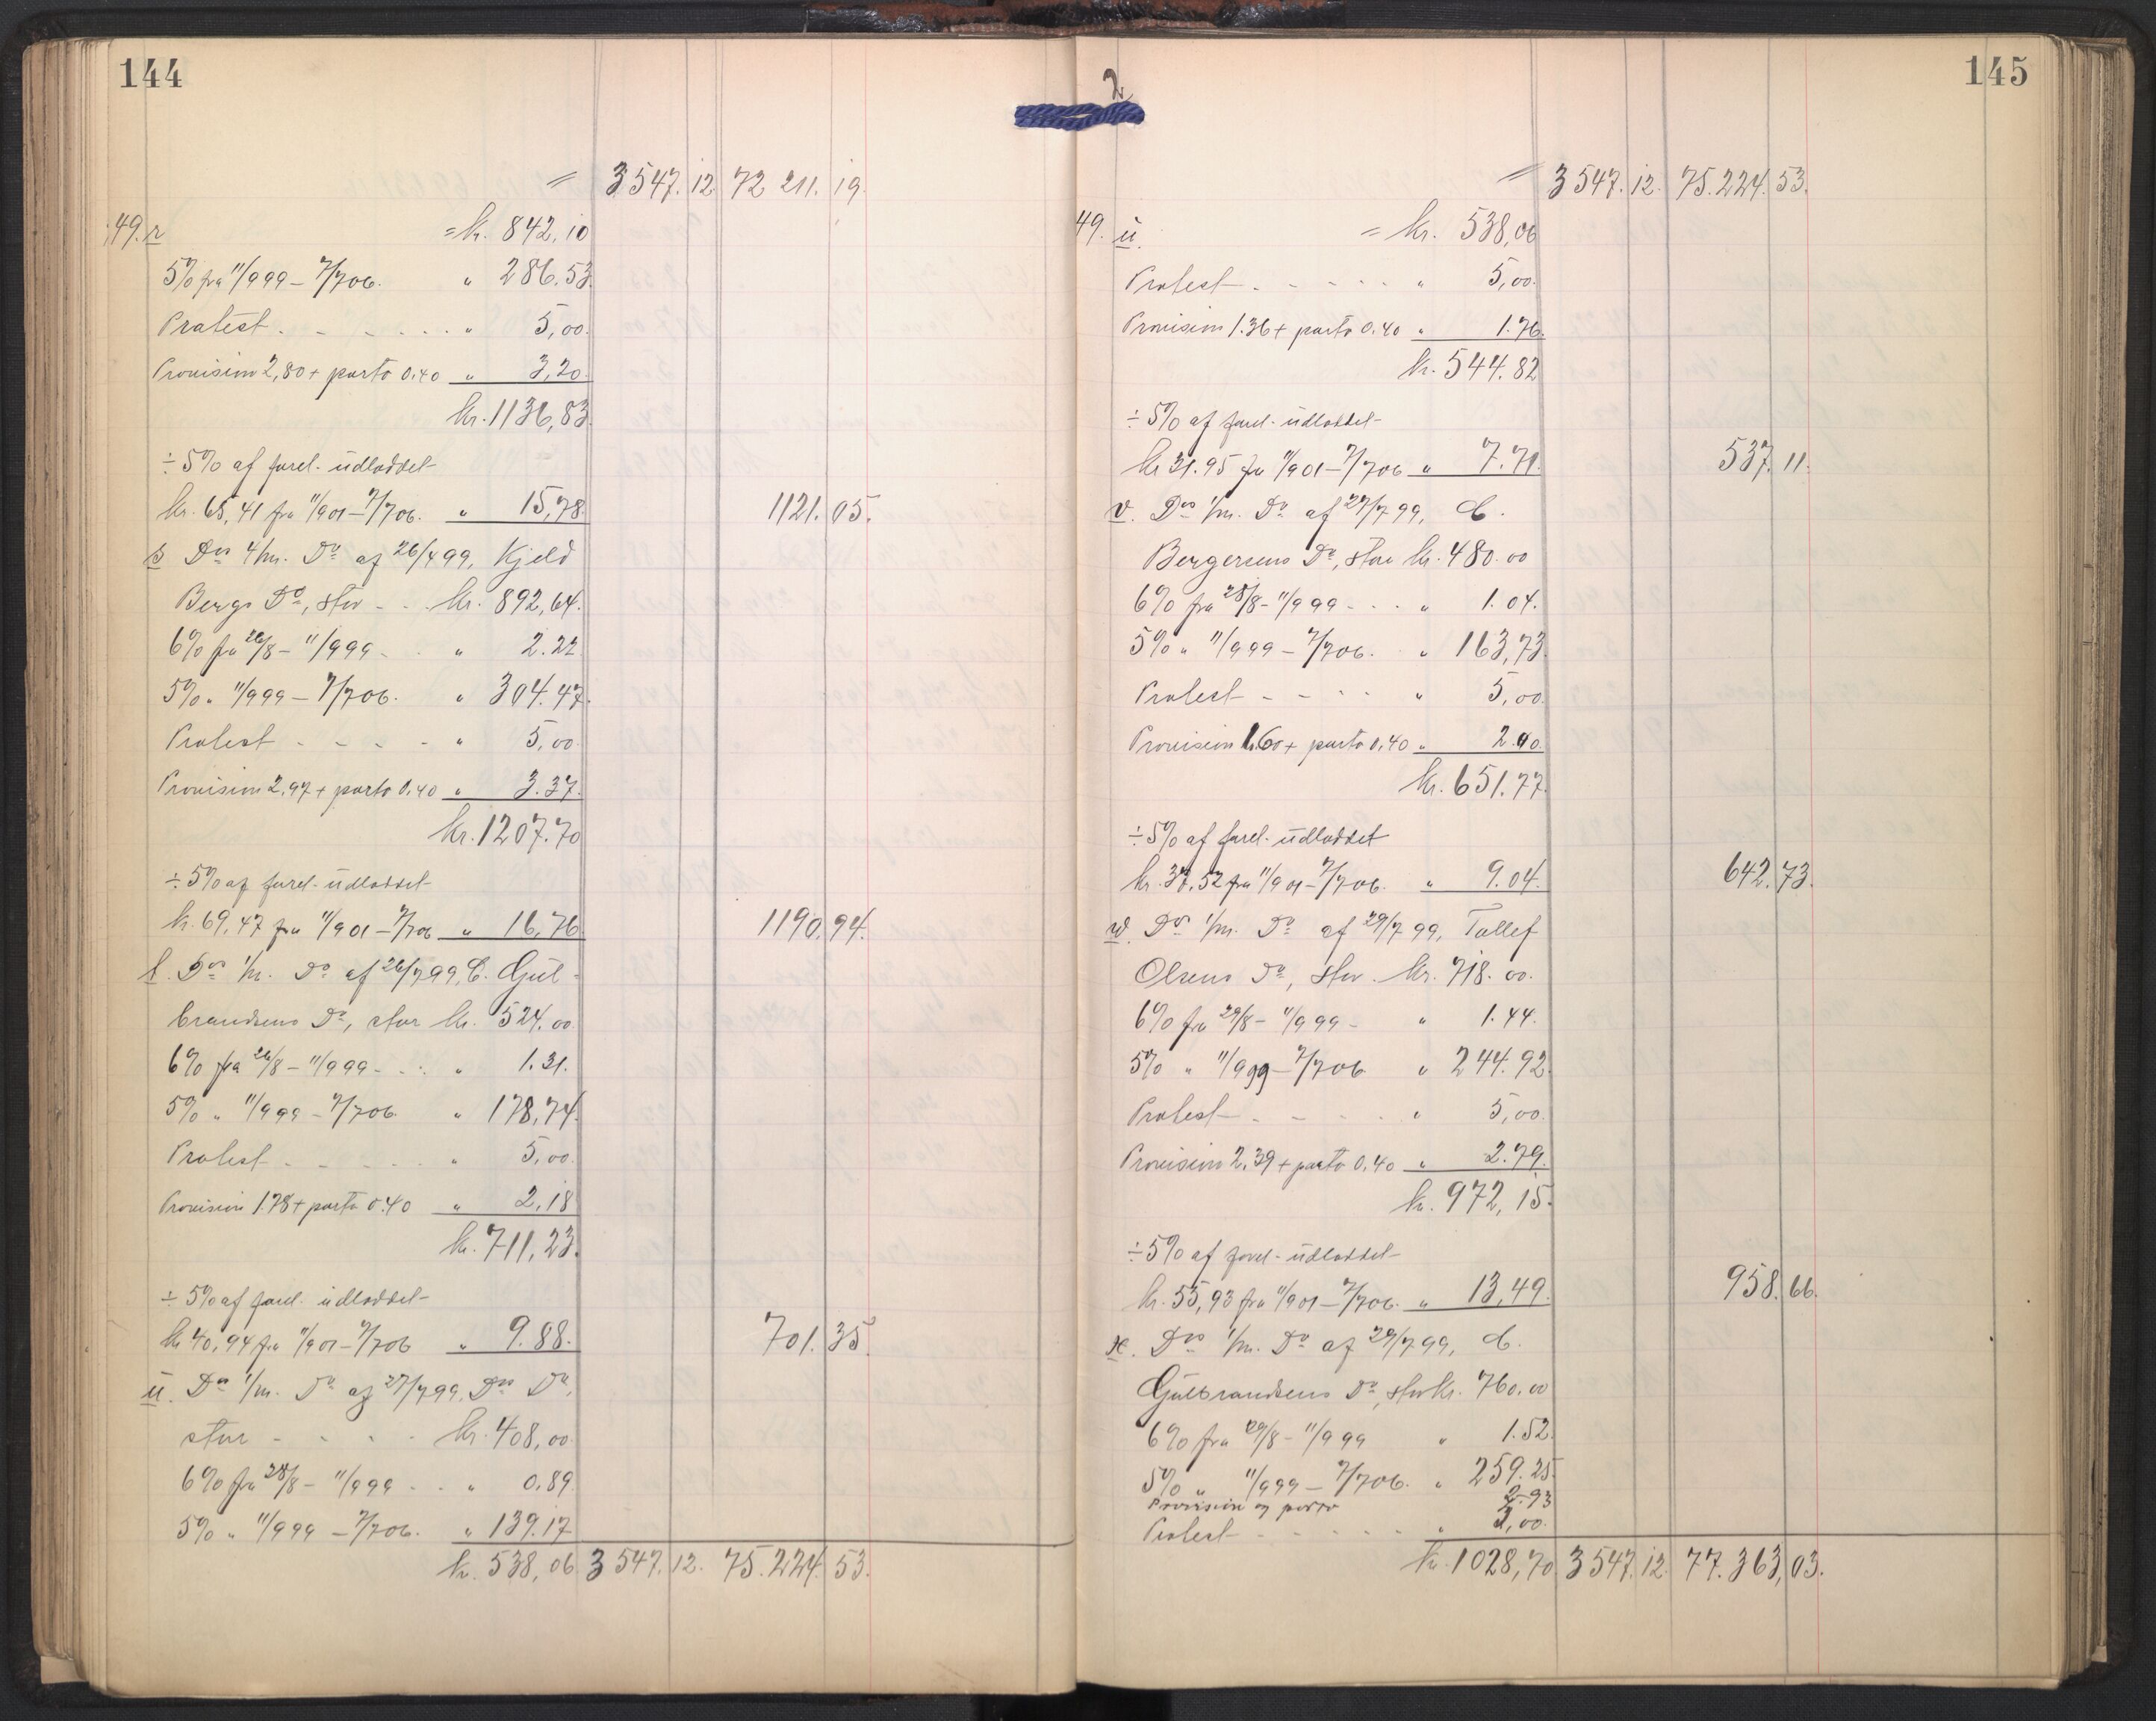 144
= 3547.12. 72 211.19.
49. r = kr. 842,10
5% fra 11/9 99 – 7/7 06. " 286.53.
Protest . - - - . . " 5,00.
Provision 2,80 + porto 0.40 " 3,20.
kr. 1136,83.
÷ 5% af forel. udloddet
kr. 65,41 fra 11/9 01 – 7/7 06. " 15,78 1121.05.
s Ds 4/m. Do af 26/4 99, Kjeld
Bergs Do, stor - . . kr. 892,64.
6% fra 26/8 – 11/9 99 - . " 2.22
5% " 11/9 99 – 7/7 06. " 304.47.
Protest - - - - " 5,00.
Provision 2,97 + porto 0.40 " 3.37.
kr. 1207.70
÷ 5% af forel. udloddet
kr. 69,47 fra 11/9 01 – 7/7 06 " 16,76 1190.94.
t. Ds 1/m. Do af 26/7 99, C. Gul-
brandsens Do, stor kr. 524.00
6% fra 26/8 – 11/9 99 - . . " 1.31.
5% " 11/9 99 – 7/7 06. " 178,74.
Protest - - - . . " 5,00.
Provision 1.78 + porto 0.40 " 2,18
kr. 711,23.
÷ 5% af forel. udloddet
kr. 40,94 fra 11/9 01 – 7/7 06 " 9.88. 701.35.
u. Ds 1/m. Do af 27/7 99, Ds Do,
stor - - - - kr. 408,00.
6% fra 28/8 – 11/9 99 . . " 0,89
5% " 11/9 99 – 7/7 06. " 139.17
kr. 538,06. 3547.12. 75.224.53.
2
145
= 3547.12. 75.224.53.
49. u. = kr. 538,06
Protest . - - - . . " 5,00.
Provision 1.36 + porto 0.40 " 1.76.
kr. 544.82
÷ 5% af forel. udloddet
kr 31.95 fra 11/9 01 – 7/7 06 " 7.71. 537.11.
v. Ds 1/m. Do af 27/7 99, C.
Bergersens Do, stor kr. 480.00
6% fra 28/8 – 11/9 99 - . . " 1.04.
5% " 11/9 99 – 7/7 06. " 163,73.
Protest - - - - " 5,00.
Provision 1.60 + porto 0,40 " 2.00.
kr. 651.77.
÷ 5% af forel. udloddet
kr. 37,52 fra 11/9 01 – 7/7 06. " 9.04. 642.73.
w. Ds 1/m. Do af 29/7 99, Tollef
Olsens Do, stor. kr. 718.00.
6% fra 29/8 – 11/9 99 - " 1.44.
5% " 11/9 99 – 7/7 06 " 244.92.
Protest - - - . . " 5,00.
Provision 2,39 + porto 0,40 " 2.79.
kr. 972,15.
÷ 5% af forel. udloddet
kr. 55,93 fra 11/9 01 – 7/7 06. " 13,49. 958.66.
x. Ds 1/m. Do af 29/7 99, C.
Gulbrandsens Do, stor kr. 760.00
6% fra 29/8 – 11/9 99 " 1.52.
5% " 11/9 99 – 7/7 06. " 259.25.
Provision og porto 2.93
Protest - - - . . " 5,00.
kr. 1028,70 3547.12. 77.363,03.